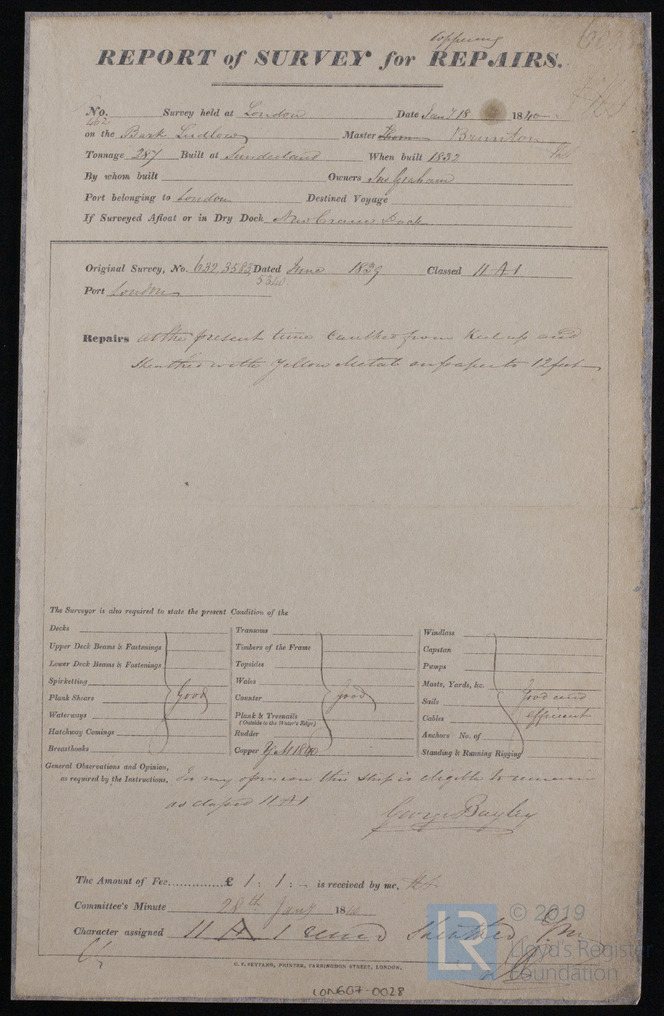 coppering
REPORT of SURVEY for REPAIRS.
No. 462 Survey held at London Date Jany 18 1840
on the Bark Ludlow Master Thomas Brunton
Tonnage 287 Built at Sunderland When built 1832
By whom built Owners Jas Graham
Port belonging to London Destined Voyage
If Surveyed Afloat or in Dry Dock New Crane Dock
Original Survey, No. 632, 3583 Dated June 1839 Classed 11 A 1
5340
Port London
Repairs at the present time Caulked from Keel up and
Sheathed with Yellow Metal on paper to 12 feet
The Surveyor is also required to state the present Condition of the
Decks
Upper Deck Beams & Fastenings
Lower Deck Beams & Fastenings
Spirketting
Plank Shears Good
Waterways
Hatchway Comings
Breasthooks
Transoms
Timbers of the Frame
Topsides
Wales
Counter good
Plank & Treenails
(Outside to the Water's Edge)
Rudder
Copper Y.M 1840
Windlass
Capstan
Pumps
Masts, Yards, &c. Good and
Sails efficient
Cables
Anchors No. of
Standing & Running Rigging
General Observations and Opinion, In my opinion this ship is eligible to remain
as required by the Instructions, as classed 11 A 1
George Bayley
The Amount of Fee.............. £ 1 : 1 : - is received by me,
Committee's Minute 20th Jany 1840
Character assigned 11 A 1 Sheathed Y.M.
C. F. SEYFANG, PRINTER, FARRINGDON STREET, LONDON.
LON607-0028
LR
© 2019
Lloyd's Register
Foundation